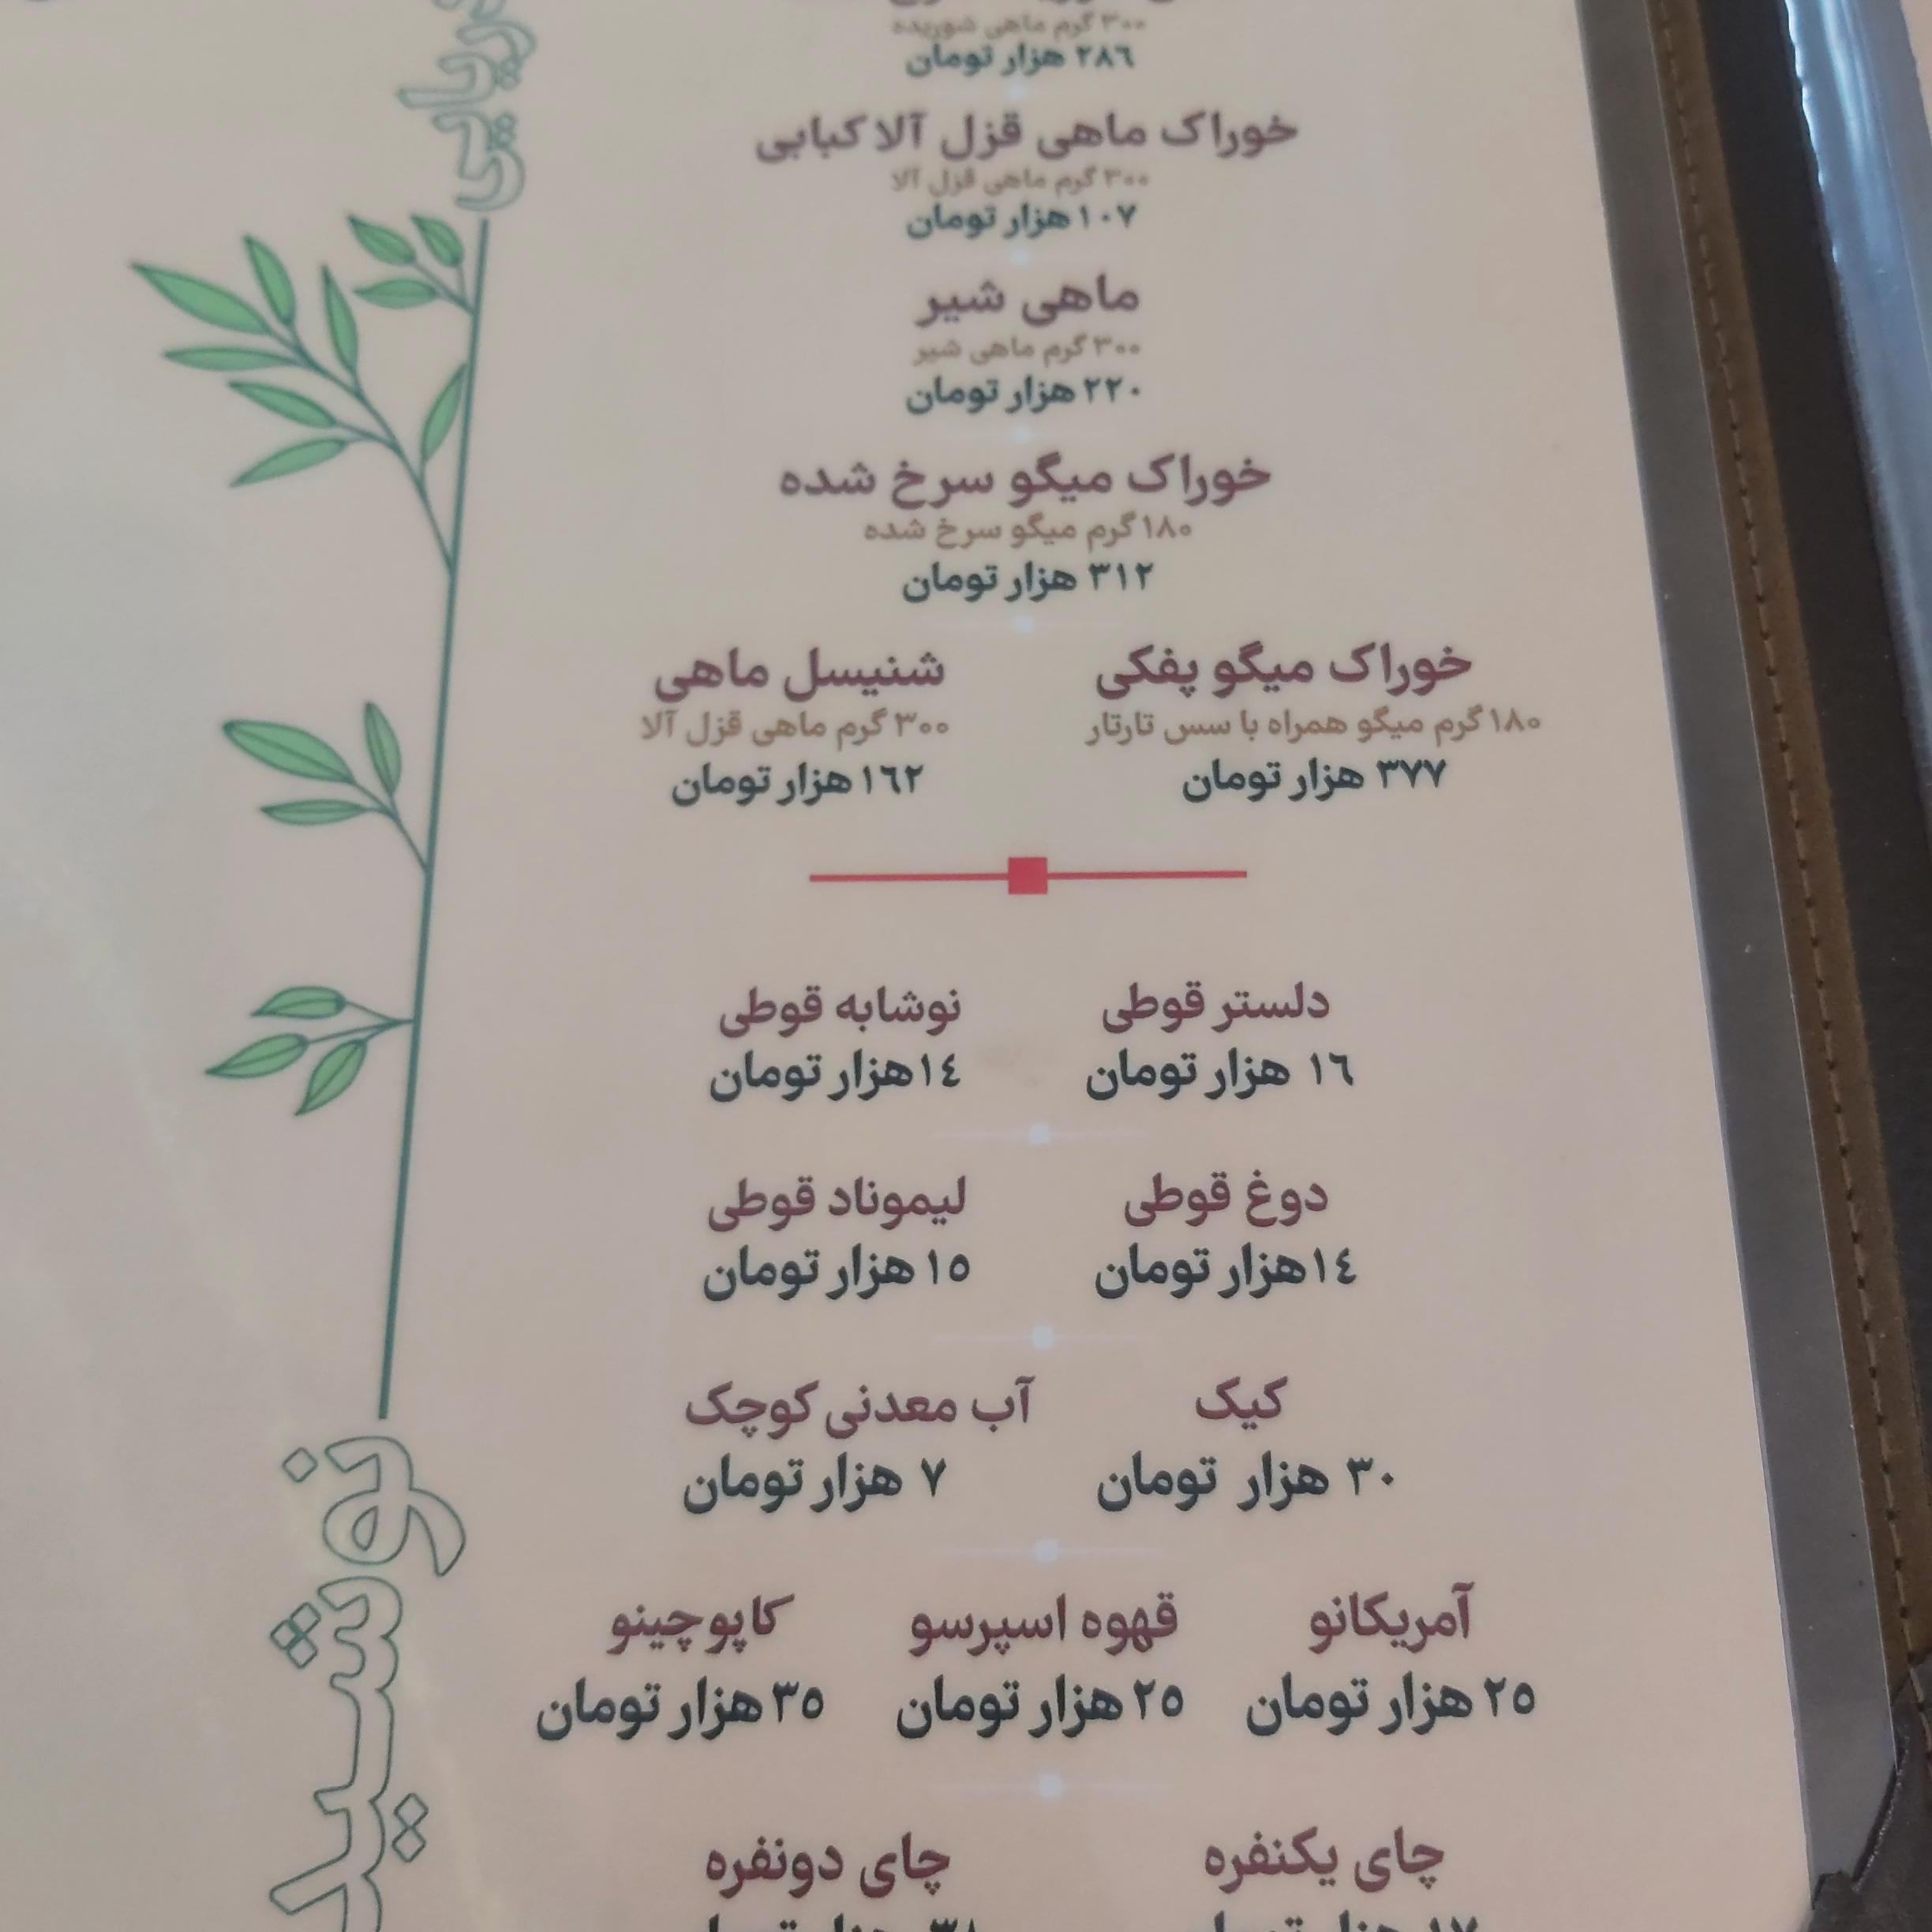 دریایی
۳۰۰ گرم ماهی شوریده
٢٨٦ هزار تومان
خوراک ماهی قزل آلا کبابی
۳۰۰ گرم ماهی قزل آلا
١٠٧ هزار تومان
ماهی شیر
۳۰۰ گرم ماهی شیر
٢٢٠ هزار تومان
خوراک میگو سرخ شده
۱۸۰ گرم میگو سرخ شده
٣١٢ هزار تومان
خوراک میگو پفکی
۱۸۰ گرم میگو همراه با سس تارتار
٣٧٧ هزار تومان
شنیسل ماهی
۳۰۰ گرم ماهی قزل آلا
١٦٢ هزار تومان
دلستر قوطی
١٦ هزار تومان
نوشابه قوطی
١٤ هزار تومان
دوغ قوطی
١٤ هزار تومان
لیموناد قوطی
١٥ هزار تومان
کیک
٣٠ هزار تومان
آب معدنی کوچک
٧ هزار تومان
آمریکانو
٢٥ هزار تومان
قهوه اسپرسو
٢٥ هزار تومان
کاپوچینو
٣٥ هزار تومان
چای یکنفره
چای دونفره